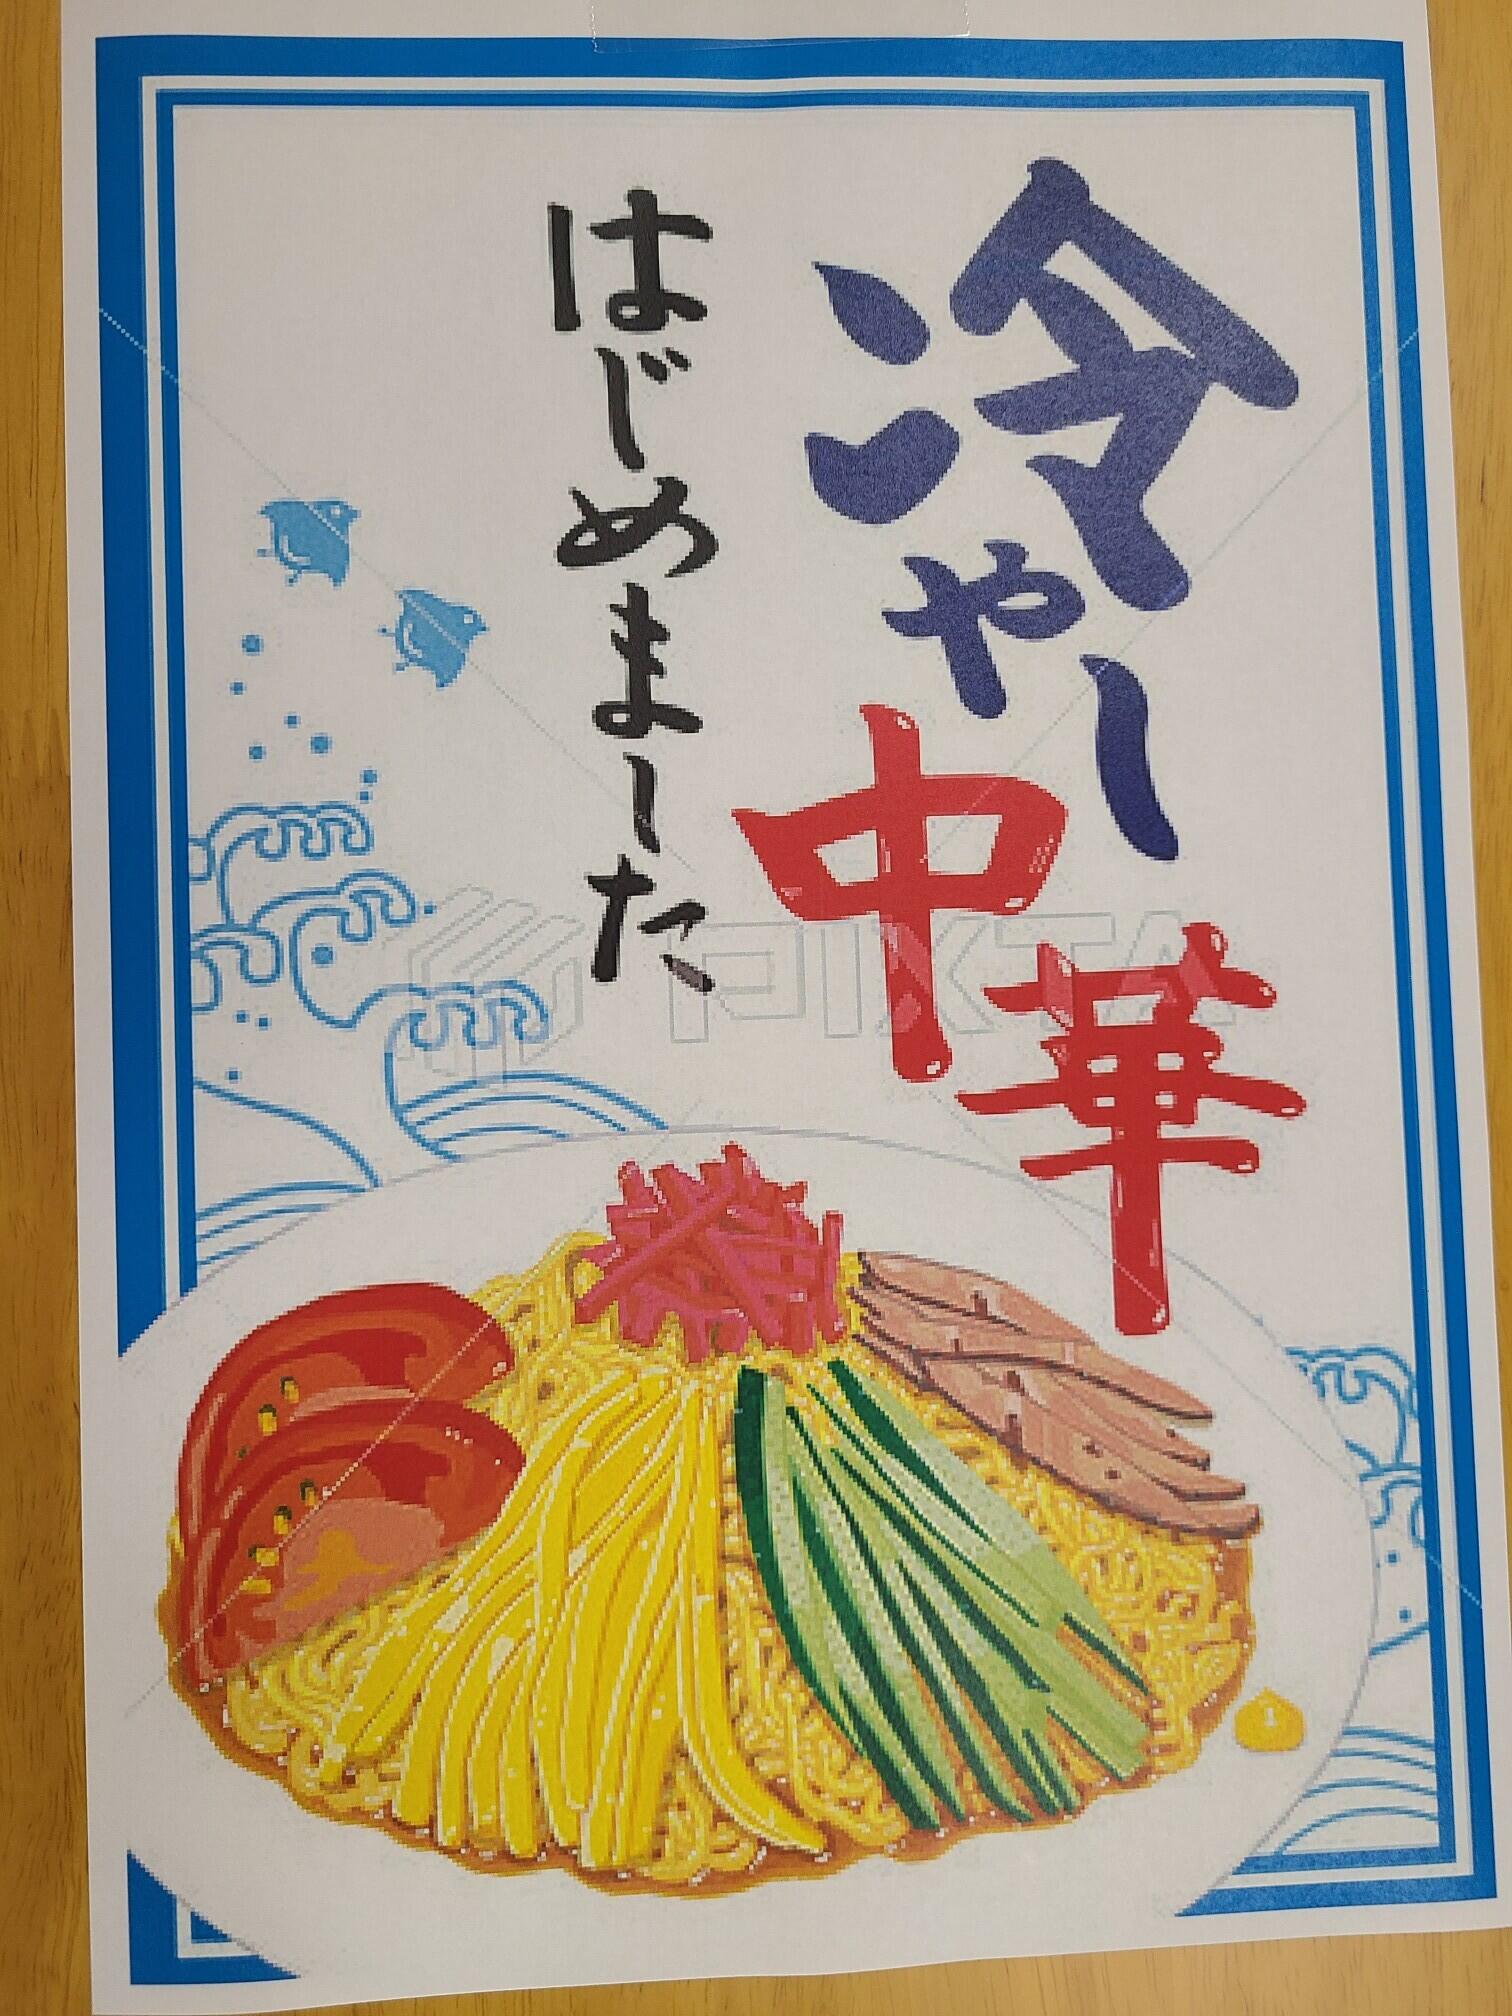 冷やし中華
はじめました
PIXTA